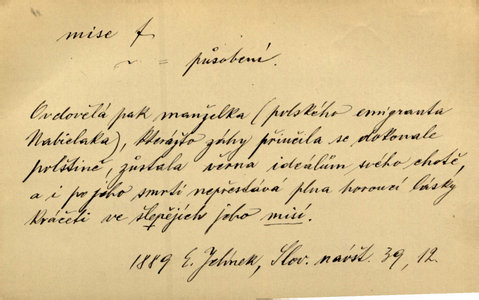 mise f
~ = působení.
Ovdovělá pak manželka (polského emigranta
Nabielaka), kterážto záhy přiučila se dokonale
polštině, zůstala věrna ideálům svého chotě,
a i po jeho smrti nepřestává plna horoucí lásky
kráčeti ve šlepějích jeho misí.
1889 E. Jelínek, Slov. návšt. 39, 12.